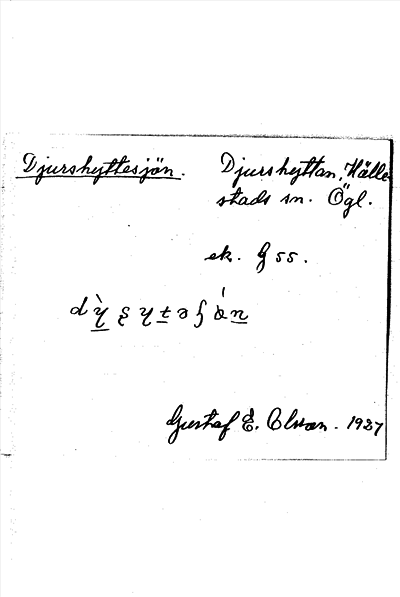 Djurshyttesjön. Djurshyttan, Hälle-
stads sn. Ögl.
ek. G 55.
Gustaf E. Olsson. 1927